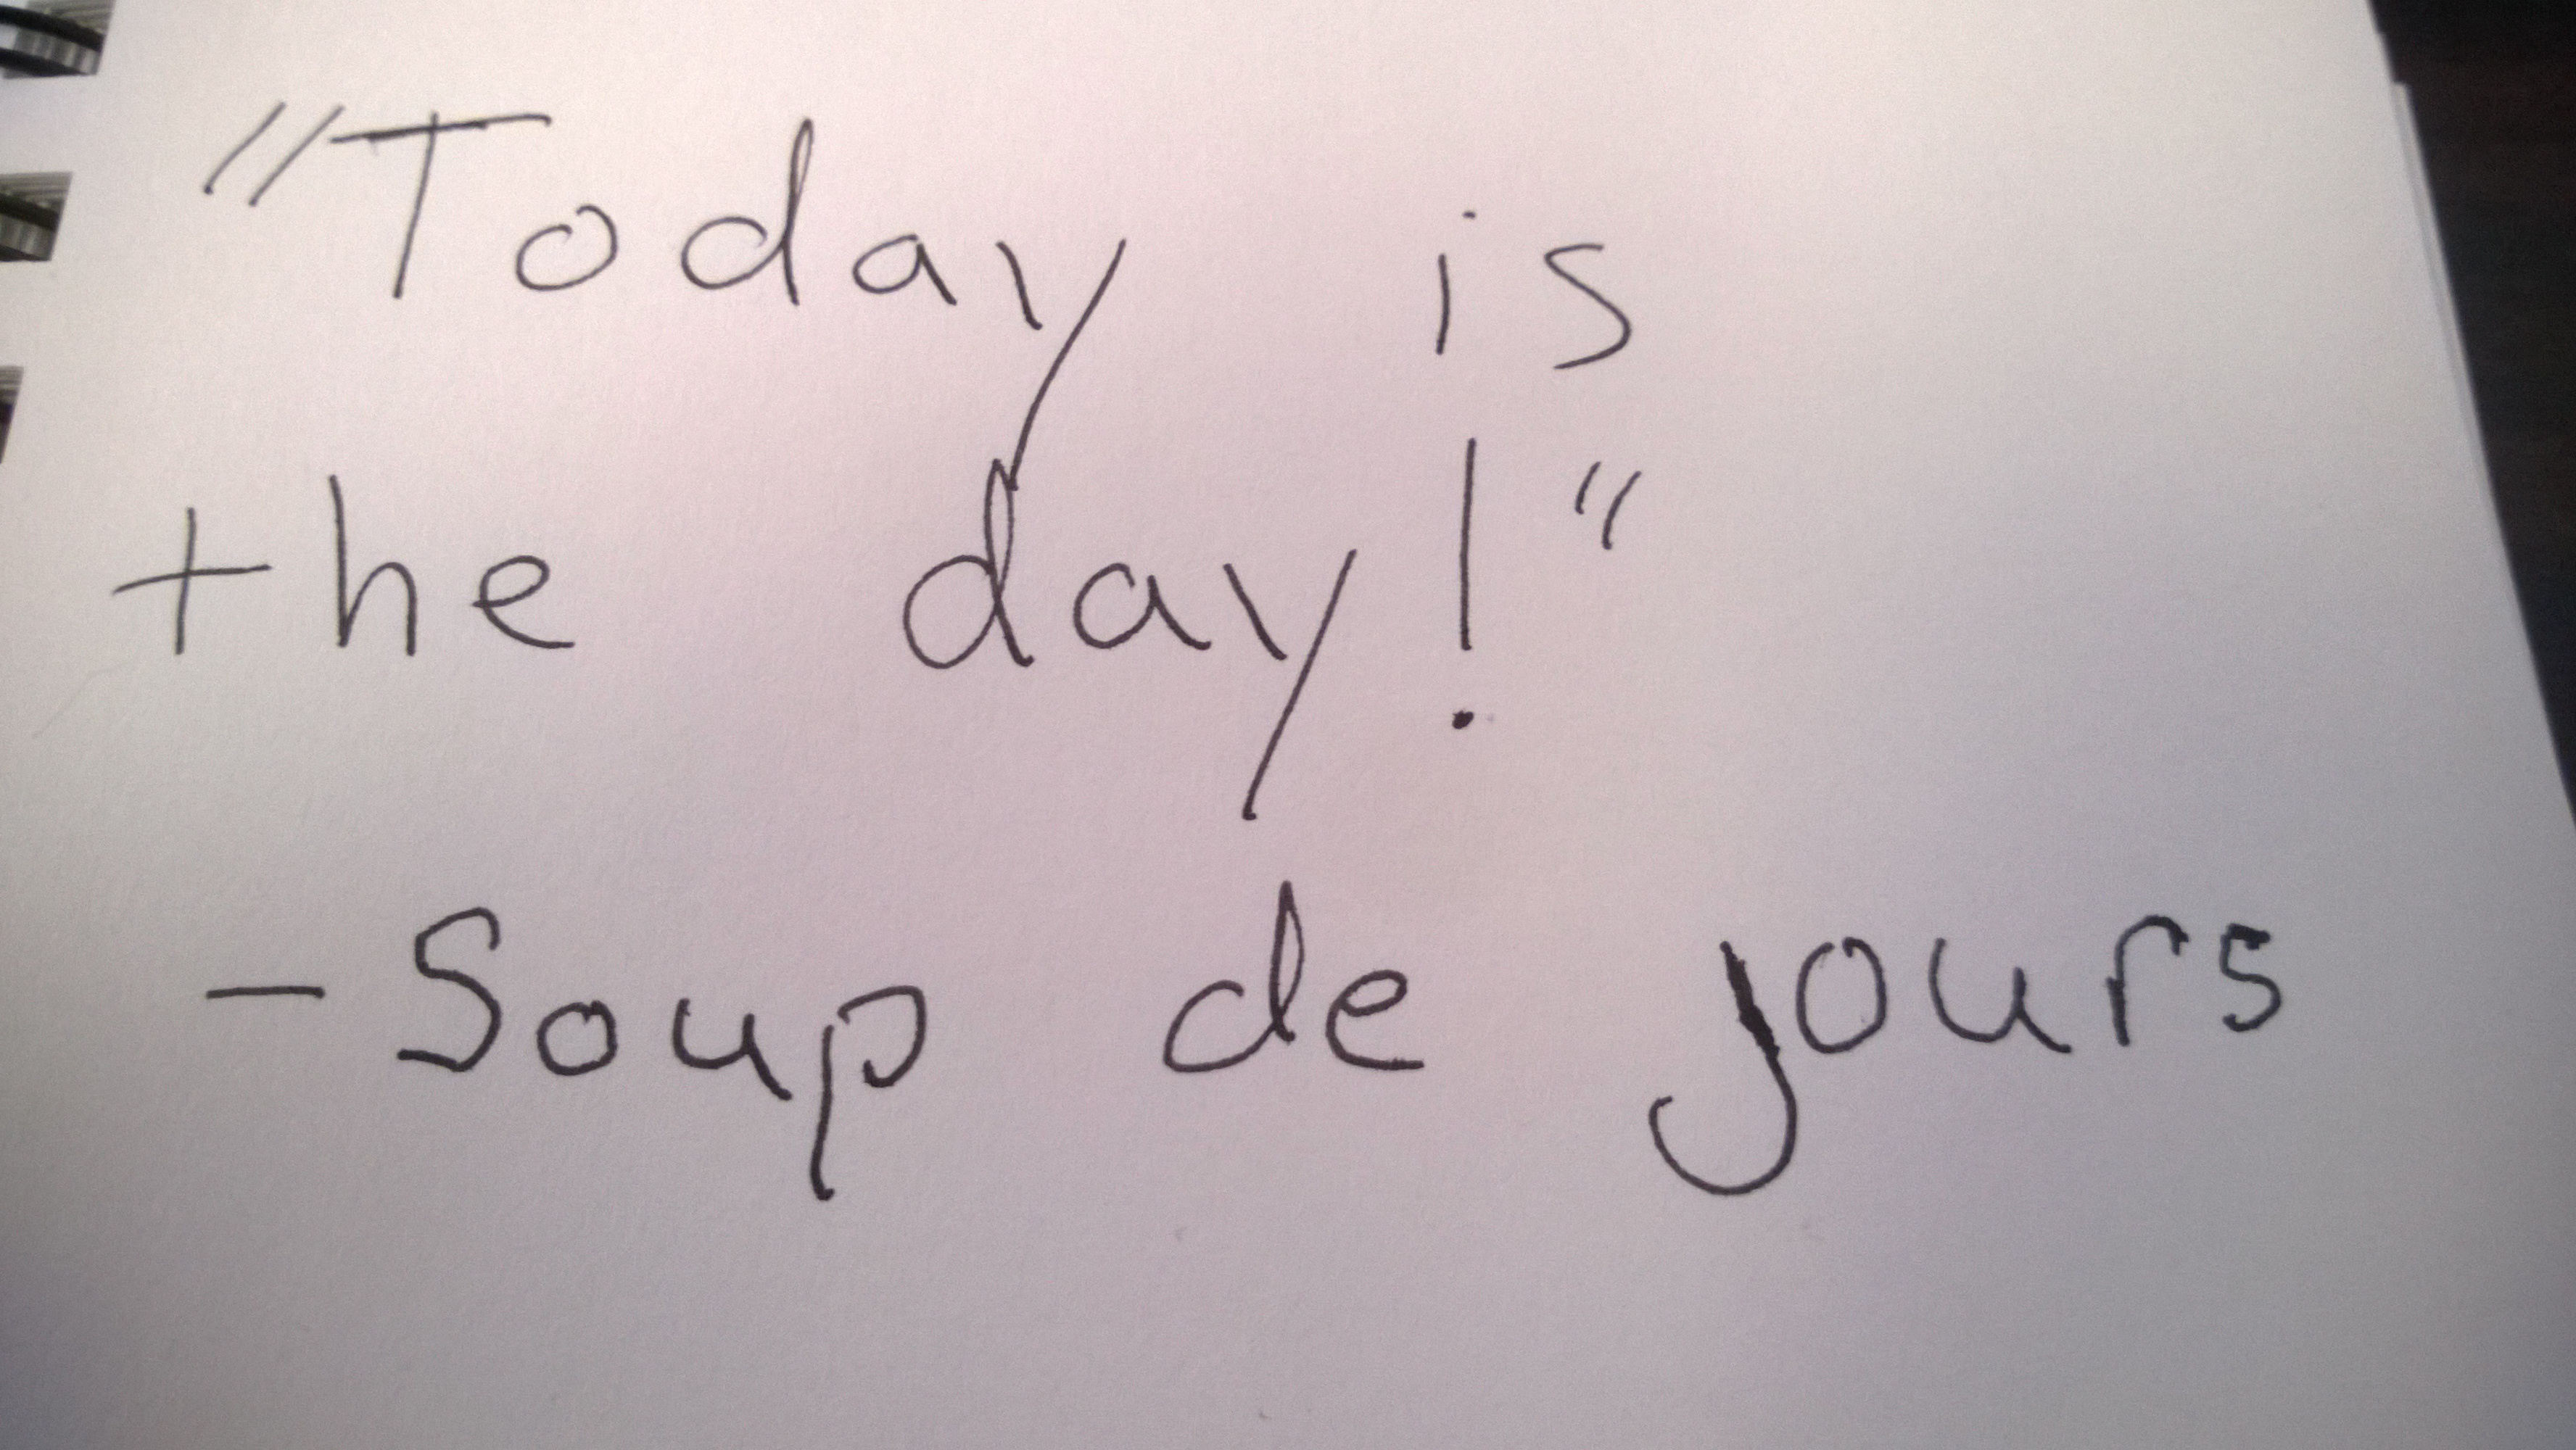 "Today is
the day!"
- Soup de jours